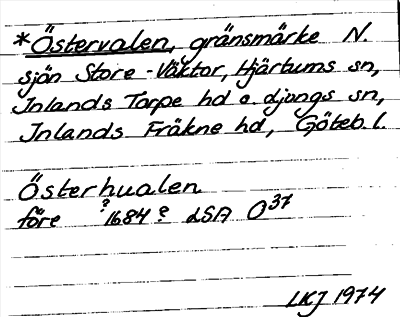 *Östervalen, gränsmärke N.
sjön Store-Väktor, Hjärtums sn,
Inlands Torpe hd o. djangs sn,
Inlands Fräkne hd, Göteb. l.
Österhualen
före ?1684? LSA O37
LKJ 1974